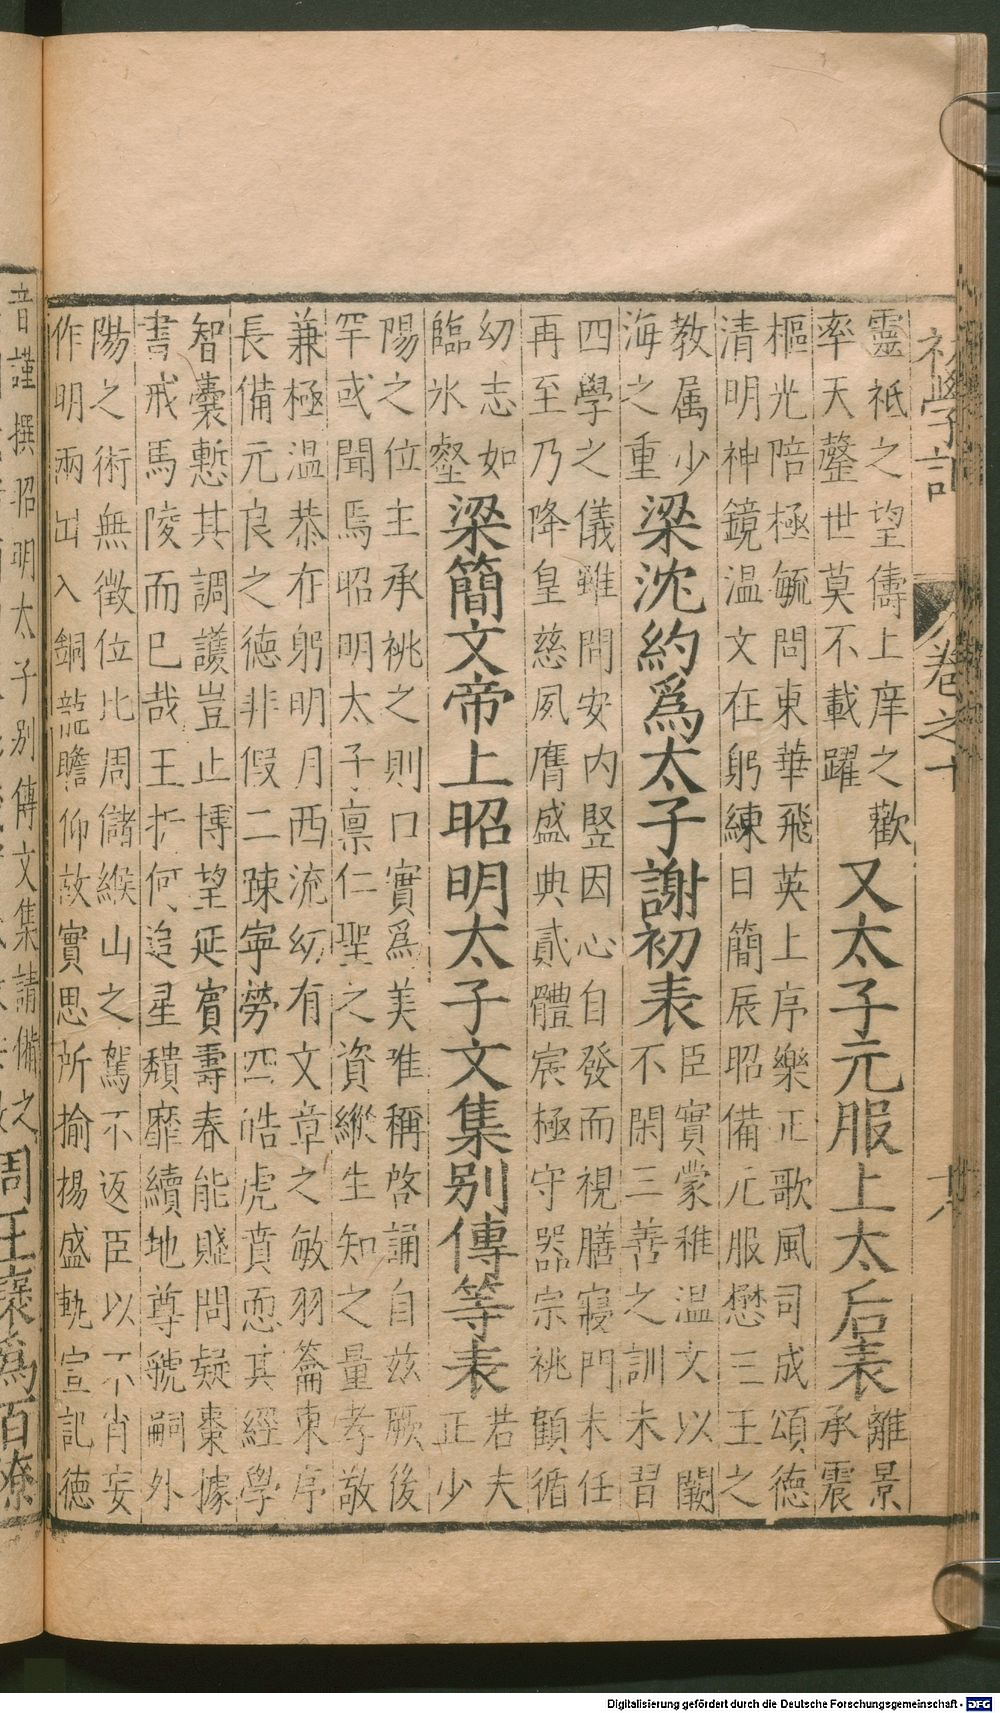 初學記 卷之十 十八
靈祇之望儔上庠之歡
率天罄世莫不載躍
又太子元服上太后表
離景
承震
樞光陪極毓問東華飛英上序樂正歌風司成頌德
清明神鏡温文在躬練日簡辰昭備元服懋三王之
教属少
海之重
梁沈約爲太子謝初表
臣實蒙稚温文以闕
不閑三善之訓未習
四學之儀雖問安内竪因心自發而視膳寢門未任
再至乃降皇慈夙膺盛典貳體宸極守器宗祧顧循
幼志如
臨氷壑
梁簡文帝上昭明太子文集别傳等表
若夫
正少
陽之位主承祧之則口實爲美唯稱啓誦自兹厥後
罕或聞焉昭明太子禀仁聖之資縱生知之量孝敬
兼極温恭在躬明月西流幼有文章之敏羽籥東序
長備元良之德非假二疎寧勞四皓虎賁恧其經學
智囊慙其調護豈止博望延賓壽春能賤問疑棗據
書戒馬陵而已哉王折何追星頽靡續地尊號嗣外
陽之術無徵位比周儲緱山之駕不返臣以不肖妄
作明兩出入銅龍瞻仰故實思所揄揚盛軌宣記德
音謹撰昭明太子别傳文集請備之
周王襃爲百僚